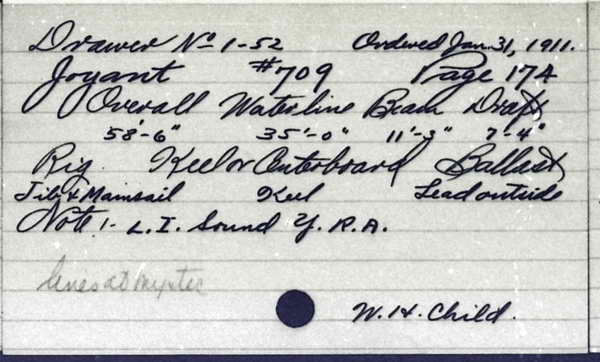 Drawer No 1-52 Ordered Jan. 31, 1911.
Joyant #709 Page 174
Overall Waterline Beam Draft
58'-6" 35'-0" 11'-3" 7'-4"
Rig. Keel or Centerboard Ballast
Jib & Mainsail Keel Lead outside
Note:- L.I. Sound Y.R.A.
lines at Mystic
W. H. Child.